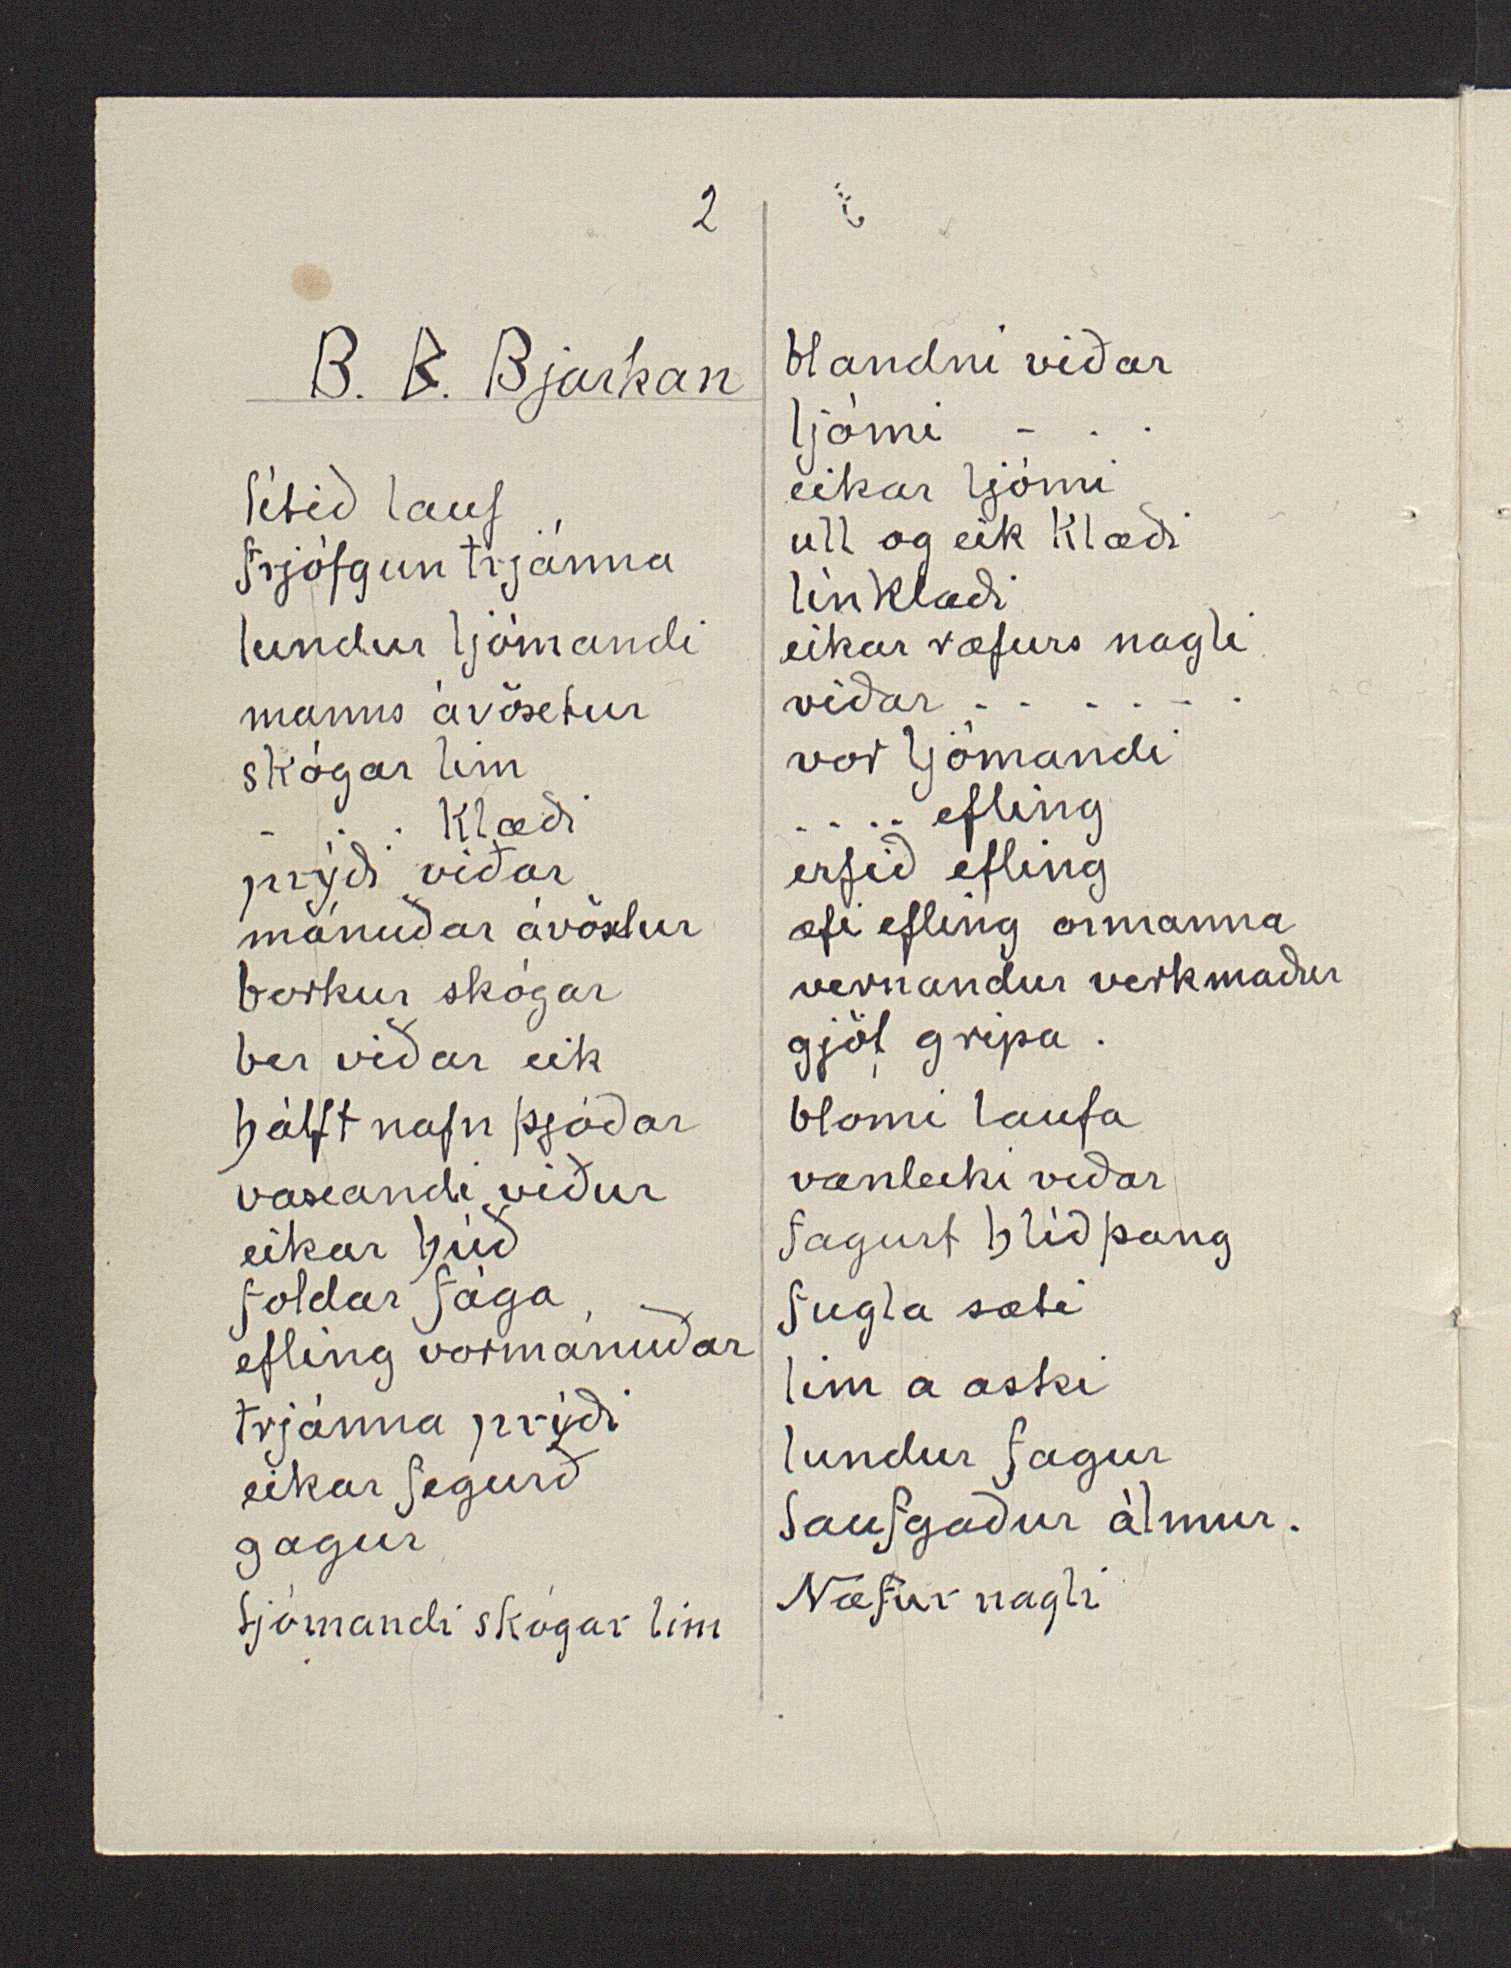 2
B. B. Bjarkan
lítið lauf
frjófgun trjánna
lundur ljómandi
manns ávöxtur
skógar lim
- . . klæði
prýði viðar
mánuðar ávöxtur
borkur skógar
ber viðar eik
hálft nafn þjóðar
vaxandi viður
eikar húð
foldar fága
efling vormánuðar
trjánna prýði
eikar fegurð
gagur
ljómandi skógar lim
blandni viðar
ljómi - . .
eikar ljómi
ull og eik klæði
línklæði
eikar ræfurs nagli
viðar - - - - - -
vor ljómandi
. . . . efling
erfið efling
æfi efling ormanna
vernandur verkmaður
gjöf gripa.
blómi laufa
vænleiki viðar
fagurt hlíðþang
fugla sæti
lim a aski
lundur fagur
laufgaður álmur.
Næfur nagli